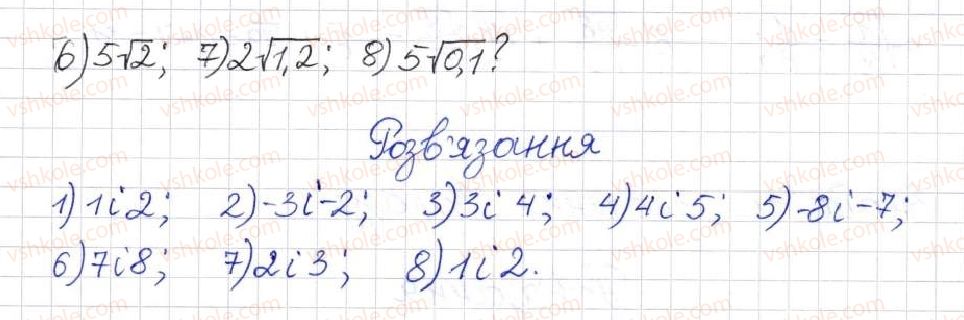 6) 5√2; 7) 2√1,2; 8) 5√0,1?
Розв'язання
1) 1 і 2; 2) -3 і -2; 3) 3 і 4; 4) 4 і 5; 5) -8 і -7;
6) 7 і 8; 7) 2 і 3; 8) 1 і 2.